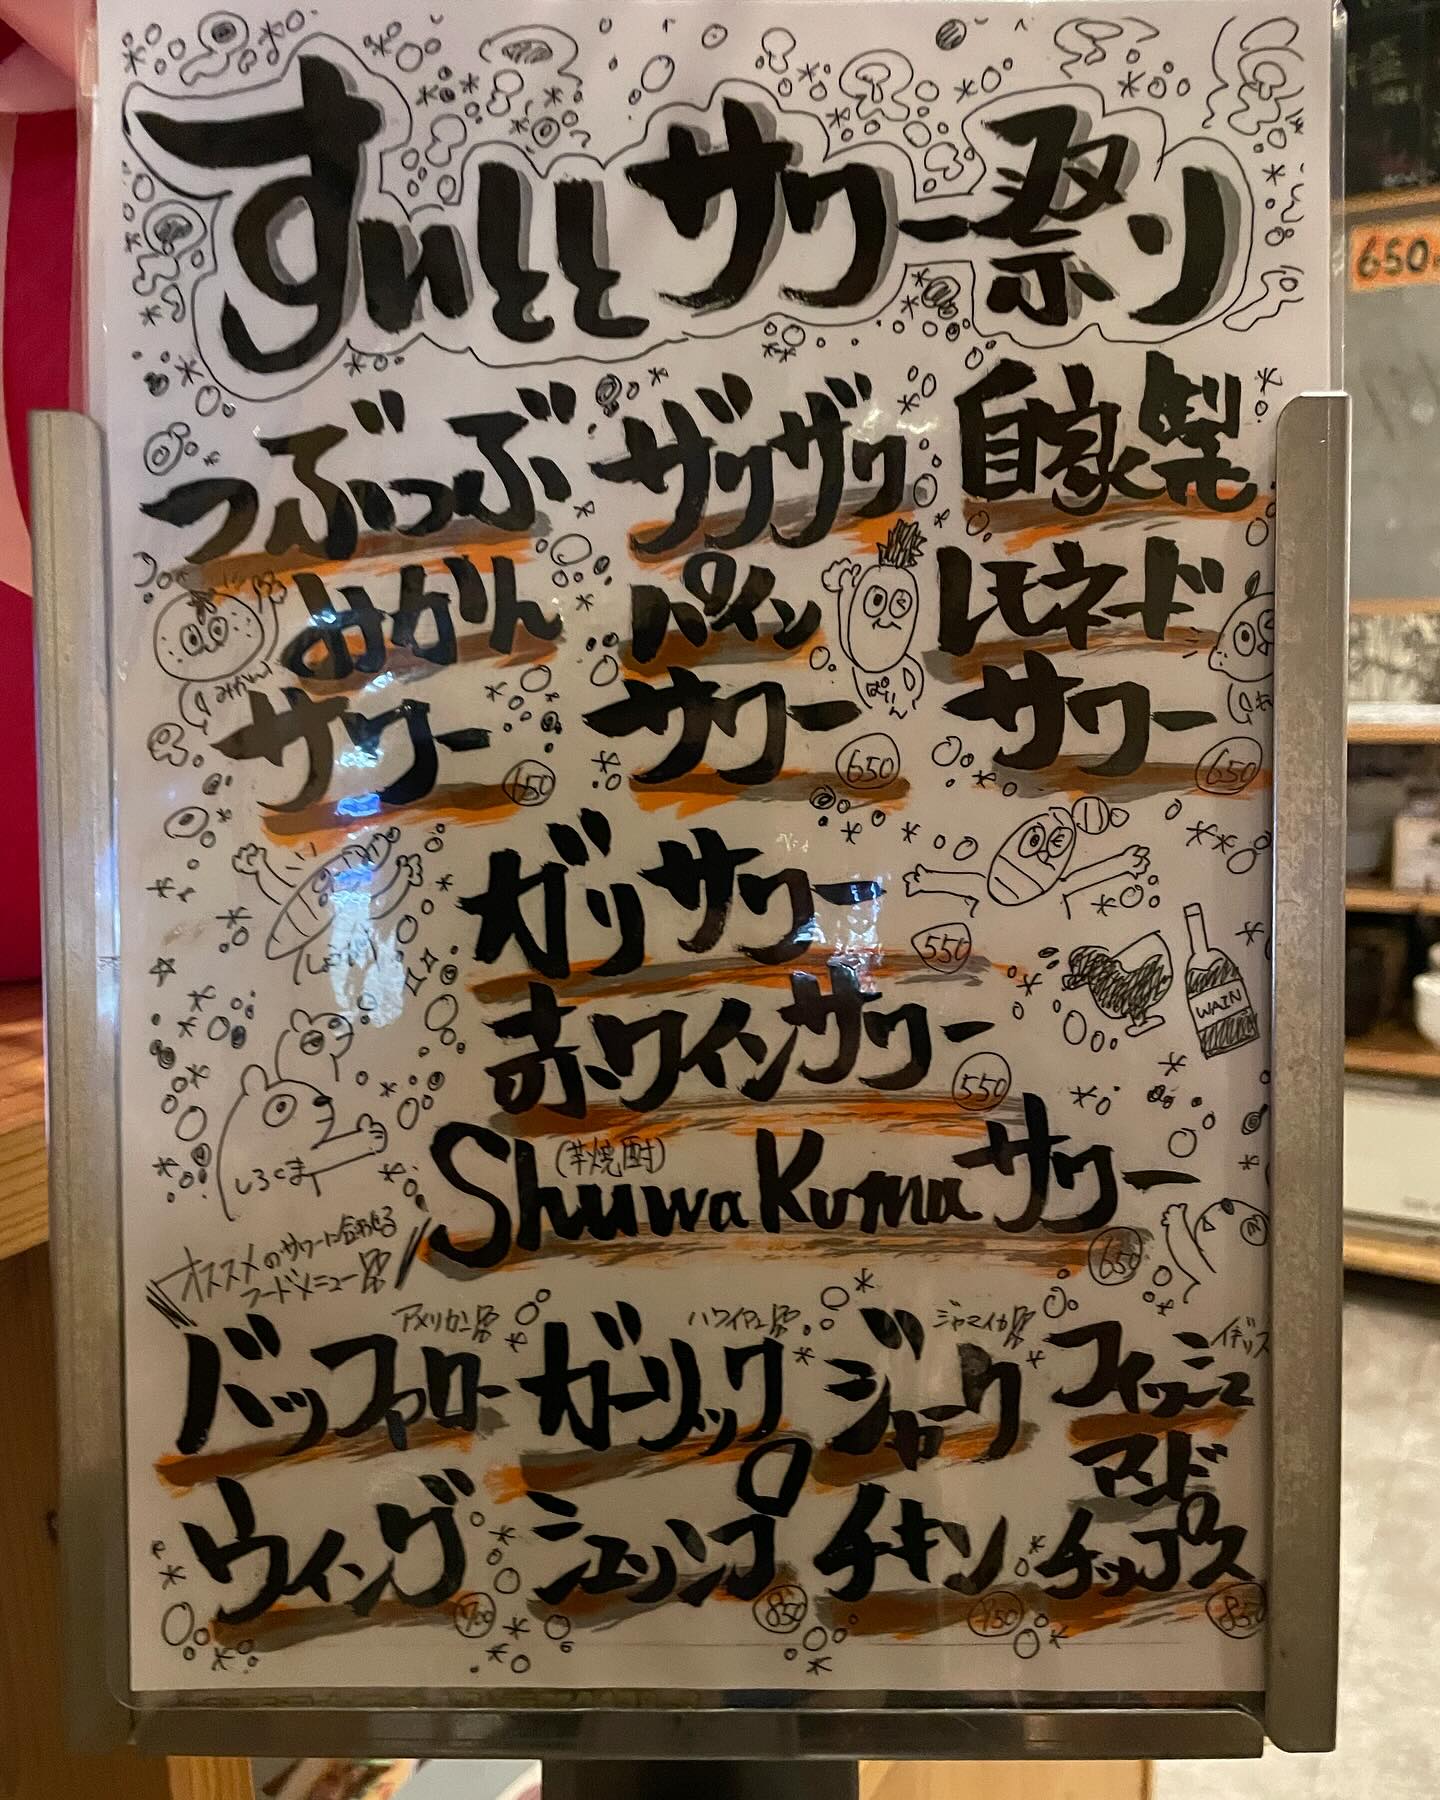 すいとと サワー祭り
つぶつぶ
みかん
サワー
650
ザクザク
パイン
サワー
650
自家製
レモネード
サワー
650
みかん
ぱいん
ガリサワー
550
赤ワインサワー
550
WAIN
しろくま
(芋焼酎)
ShuwaKumaサワー
650
オススメのサワーに合わせる
フードメニュー
アメリカン
バッファロー
ウィング
ハワイアン
ガーリック
シュリンプ
850
ジャマイカ
ジャーク
チキン
950
イギリス
フィッシュ
アンド
チップス
850
650